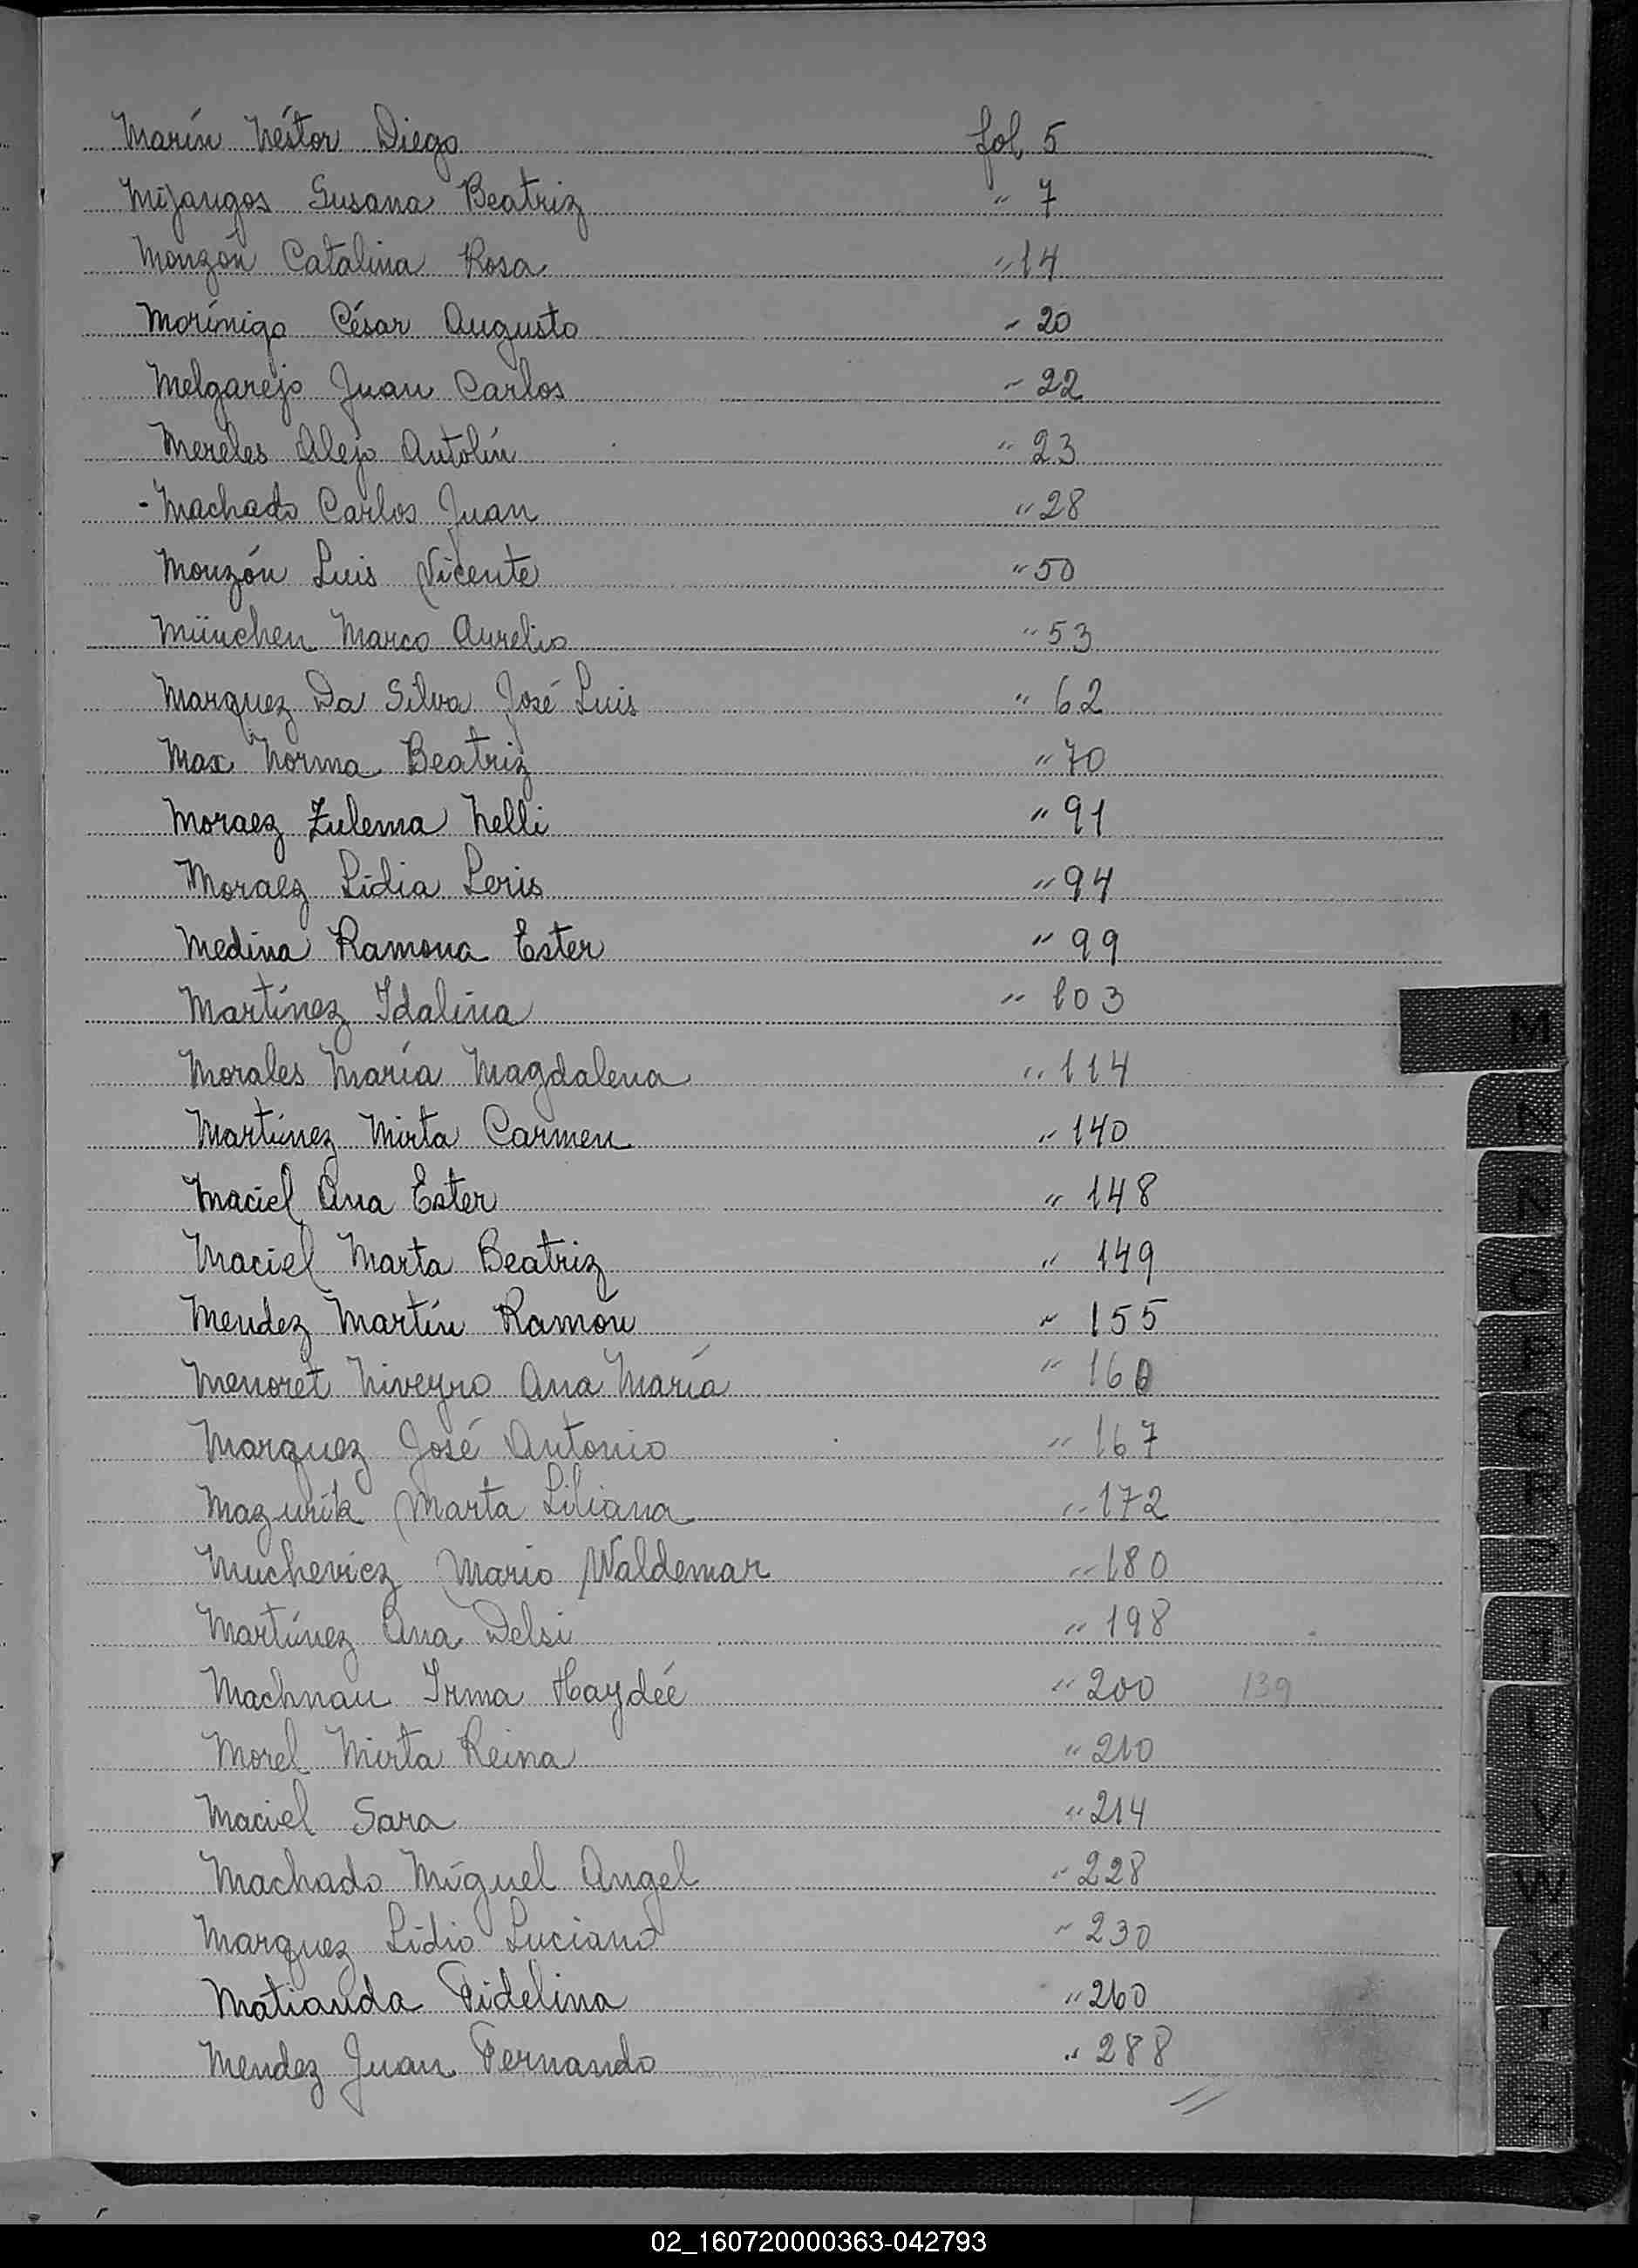 Marín Néstor Diego fol 5
Mijangos Susana Beatriz " 7
Monzón Catalina Rosa " 14
Morínigo César Augusto " 20
Melgarejo Juan Carlos " 22
Mereles Alejo Antolín " 23
- Machado Carlos Juan " 28
Monzón Luis Vicente " 50
München Marco Aurelio " 53
Marquez Da Silva José Luis " 62
Max Norma Beatriz " 70
Moraez Zulema Nelli " 91
Moraez Lidia Leris " 94
Medina Ramona Ester " 99
Martínez Idalina " 103
Morales María Magdalena " 114
Martínez Mirta Carmen " 140
Maciel Ana Ester " 148
Maciel Marta Beatriz " 149
Mendez Martín Ramón " 155
Menoret Niveyro Ana María " 160
Marquez José Antonio " 167
Mazurik Marta Liliana " 172
Muchevicz Mario Waldemar " 180
Martínez Ana Delsi " 198
Machnau Irma Haydée " 200 139
Morel Mirta Reina " 210
Maciel Sara " 214
Machado Miguel Angel " 228
Marquez Lidio Luciano " 230
Matianda Fidelina " 260
Mendez Juan Fernando " 288
M
N
Ñ
O
P
Q
R
S
T
U
V
W
X
Y
Z
02_160720000363-042793